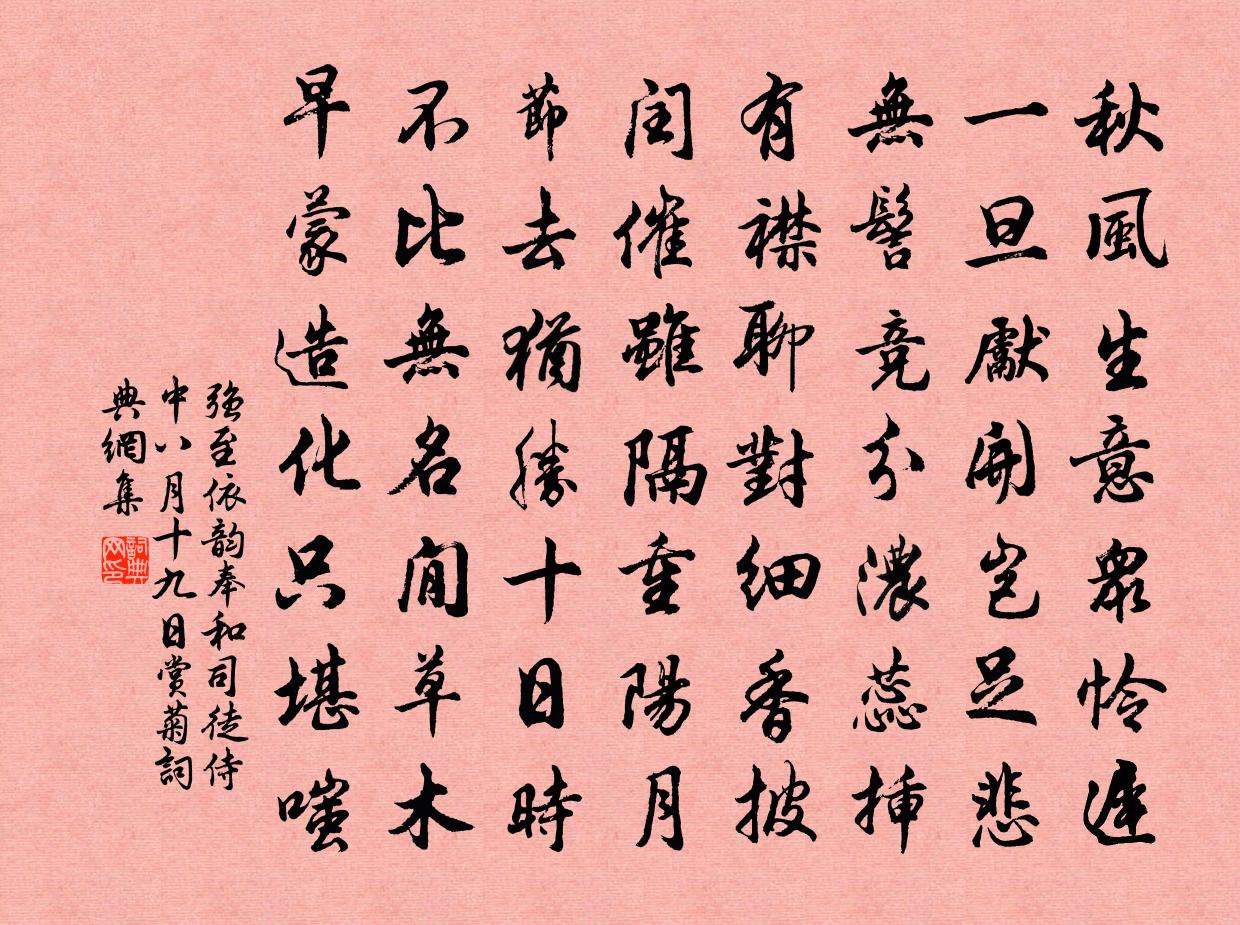 秋風生意衆怜遲
一旦獻開岂足悲
無髻竞分濃蕊揷
有襟聊對細香披
闰催雖隔重陽月
莭去猶勝十日時
不比無名閒草木
早蒙造化只堪嗤
强至依韵奉和司徒侍
中八月十九日赏菊詞
典網集
詞典网印